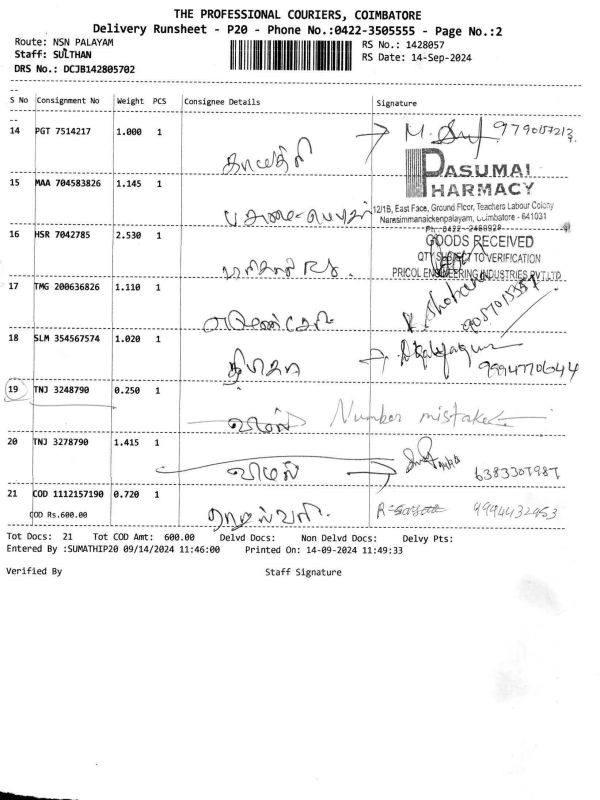 THE PROFESSIONAL COURIERS, COIMBATORE
Delivery Runsheet - P20 - Phone No.:0422-3505555 - Page No.:2
Route: NSN PALAYAM
RS No.: 1428057
Staff: SULTHAN
RS Date: 14-Sep-2024
DRS No.: DCJB142805702
S No Consignment No Weight PCS Consignee Details Signature
14 PGT 7514217 1.000 1
காயத்ரி
PASUMAI
PHARMACY
15 MAA 704583826 1.145 1
12/1B, East Face, Ground Floor, Teachers Labour Colony
Narasimmanaickenpalayam, Coimbatore - 641031
Ph.: 0422 - 2460928
16 HSR 7042785 2.530 1
GOODS RECEIVED
QTY SUBJECT TO VERIFICATION
PRICOL ENGINEERING INDUSTRIES PVT LTD
17 TMG 200636826 1.110 1
18 SLM 354567574 1.020 1
19 TNJ 3248790 0.250 1
விமல் Number mistake
20 TNJ 3278790 1.415 1
விமல் 6383307987
21 COD 1112157190 0.720 1
COD Rs.600.00
9994432953
Tot Docs: 21 Tot COD Amt: 600.00 Delvd Docs: Non Delvd Docs: Delvy Pts:
Entered By :SUMATHIP20 09/14/2024 11:46:00 Printed On: 14-09-2024 11:49:33
Verified By Staff Signature